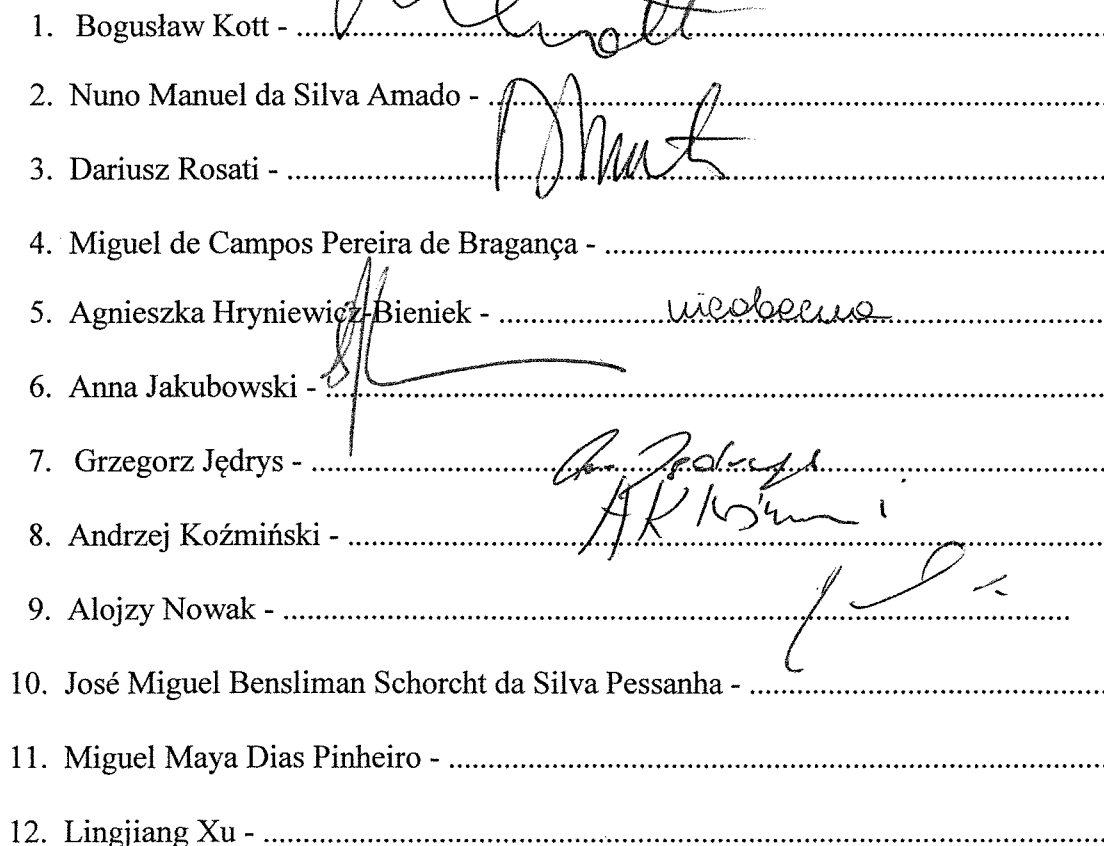 1. Bogusław Kott - ........................................................
2. Nuno Manuel da Silva Amado - ........................................................
3. Dariusz Rosati - ........................................................
4. Miguel de Campos Pereira de Bragança - ........................................................
5. Agnieszka Hryniewicz-Bieniek - ............ nieobecna ............
6. Anna Jakubowski - ........................................................
7. Grzegorz Jędrys - ........................................................
8. Andrzej Koźmiński - ........................................................
9. Alojzy Nowak - ........................................................
10. José Miguel Bensliman Schorcht da Silva Pessanha - ........................................
11. Miguel Maya Dias Pinheiro - ........................................................
12. Lingjiang Xu - ........................................................